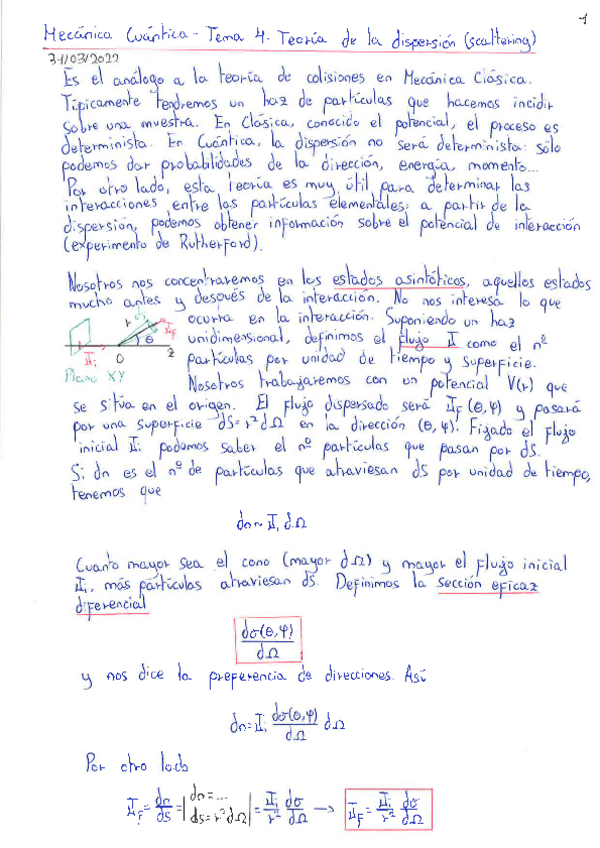 1
Mecánica Cuántica - Tema 4. Teoría de la dispersión (scattering)
31/03/2022
Es el análogo a la teoría de colisiones en Mecánica Clásica.
Típicamente tendremos un haz de partículas que hacemos incidir
sobre una muestra. En Clásica, conocido el potencial, el proceso es
determinista. En Cuántica, la dispersión no será determinista: sólo
podemos dar probabilidades de la dirección, energía, momento...
Por otro lado, esta teoría es muy útil para determinar las
interacciones entre las partículas elementales: a partir de la
dispersión, podemos obtener información sobre el potencial de interacción
(experimento de Rutherford).
Nosotros nos concentraremos en los estados asintóticos, aquellos estados
mucho antes y después de la interacción. No nos interesa lo que
ocurra en la interacción. Suponiendo un haz
unidimensional, definimos el flujo II como el nº
partículas por unidad de tiempo y superficie.
Nosotros trabajaremos con un potencial V(r) que
r II_F θ
II_i O z
Plano XY
se sitúa en el origen. El flujo dispersado será II_F (θ,φ) y pasará
por una superficie dS=r²dΩ en la dirección (θ,φ). Fijado el flujo
inicial II_i podemos saber el nº partículas que pasan por dS.
Si dn es el nº de partículas que atraviesan dS por unidad de tiempo,
tenemos que
dn ~ II_i dΩ
Cuanto mayor sea el cono (mayor dΩ) y mayor el flujo inicial
II_i, más partículas atraviesan dS. Definimos la sección eficaz
diferencial
dσ(θ,φ)/dΩ
y nos dice la preferencia de direcciones. Así
dn = II_i dσ(θ,φ)/dΩ dΩ
Por otro lado
II_F = dn/dS = |dn=... dS=r²dΩ| = II_i/r² dσ/dΩ → II_F = II_i/r² dσ/dΩ